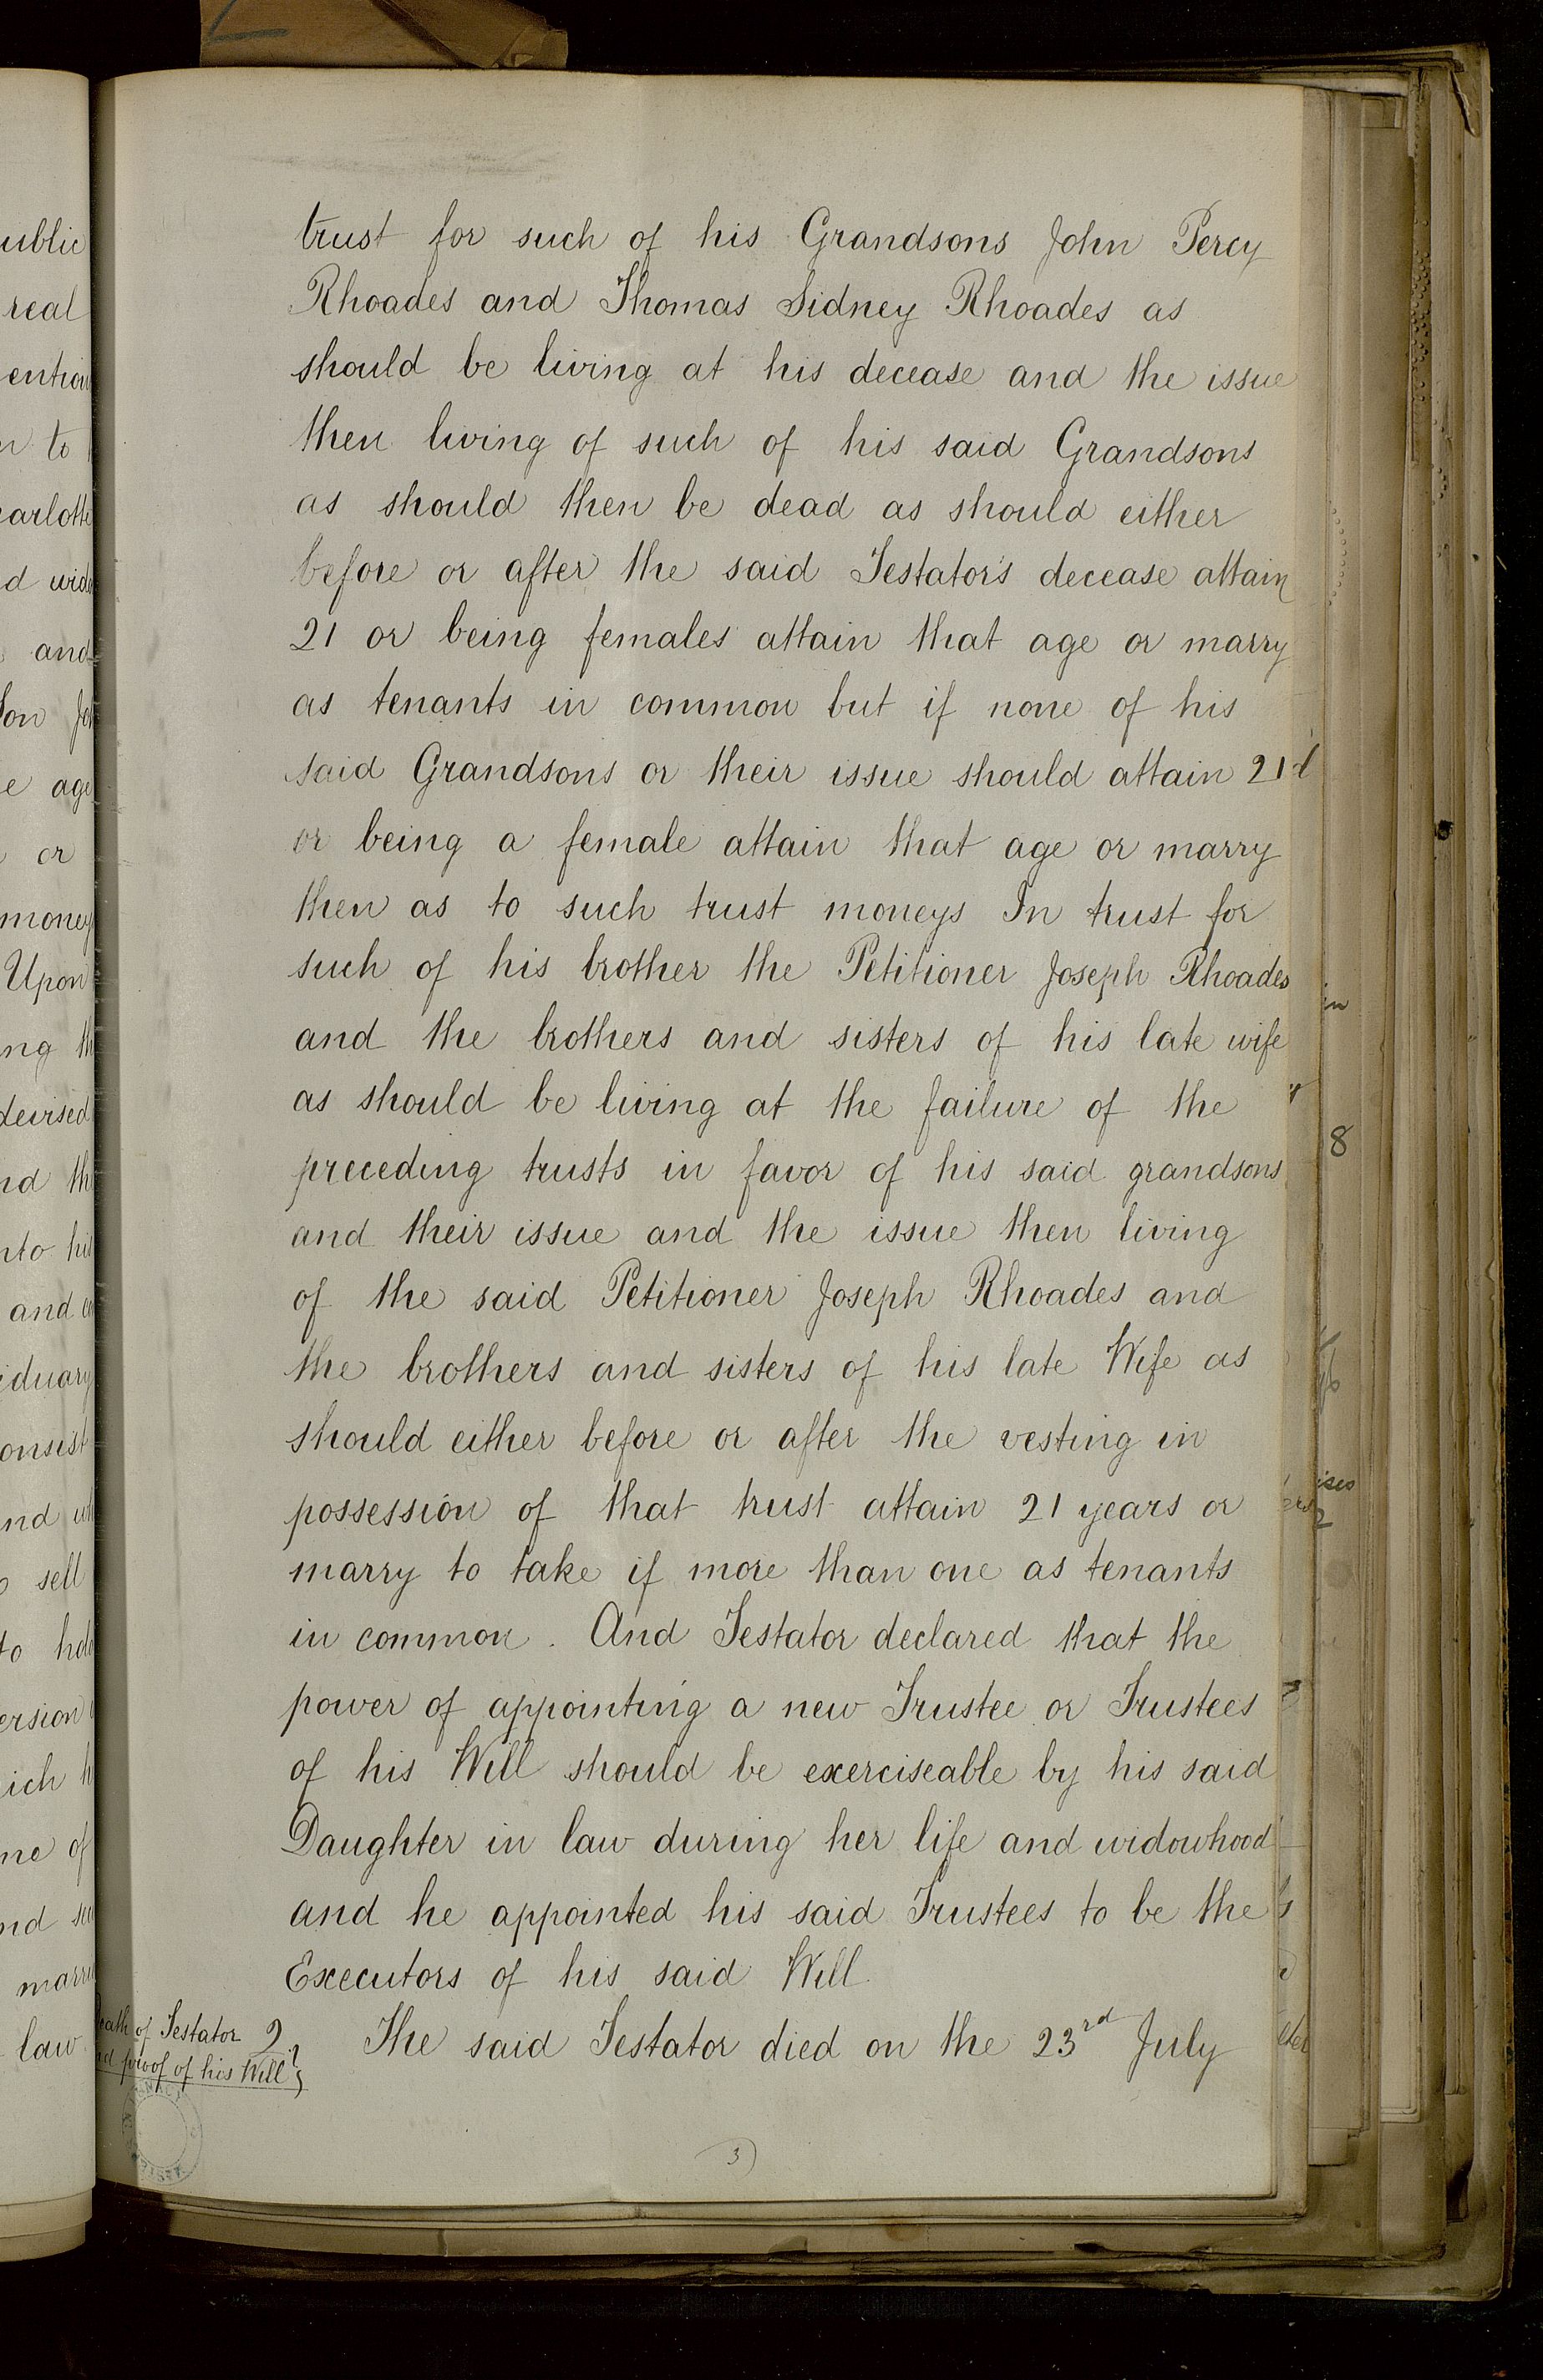 trust for such of his Grandsons John Percy
Rhoades and Thomas Sidney Rhoades as
should be living at his decease and the issue
then living of such of his said Grandsons
as should then be dead as should either
before or after the said Testator's decease attain
21 or being females attain that age or marry
as tenants in common but if none of his
said Grandsons or their issue should attain 21
or being a female attain that age or marry
then as to such trust moneys In trust for
such of his brother the Petitioner Joseph Rhoades
and the brothers and sisters of his late wife
as should be living at the failure of the
preceding trusts in favor of his said grandsons
and their issue and the issue then living
of the said Petitioner Joseph Rhoades and
the brothers and sisters of his late Wife as
should either before or after the vesting in
possession of that trust attain 21 years or
marry to take if more than one as tenants
in common. And Testator declared that the
power of appointing a new Trustee or Trustees
of his Will should be exerciseable by his said
Daughter in law during her life and widowhood
and he appointed his said Trustees to be the
Executors of his said Will.
of Testator
proof of his Will
2. The said Testator died on the 23rd July
3)
ublic
real
to
and
age
or
money
Upon
devised
and
sell
law
8
in